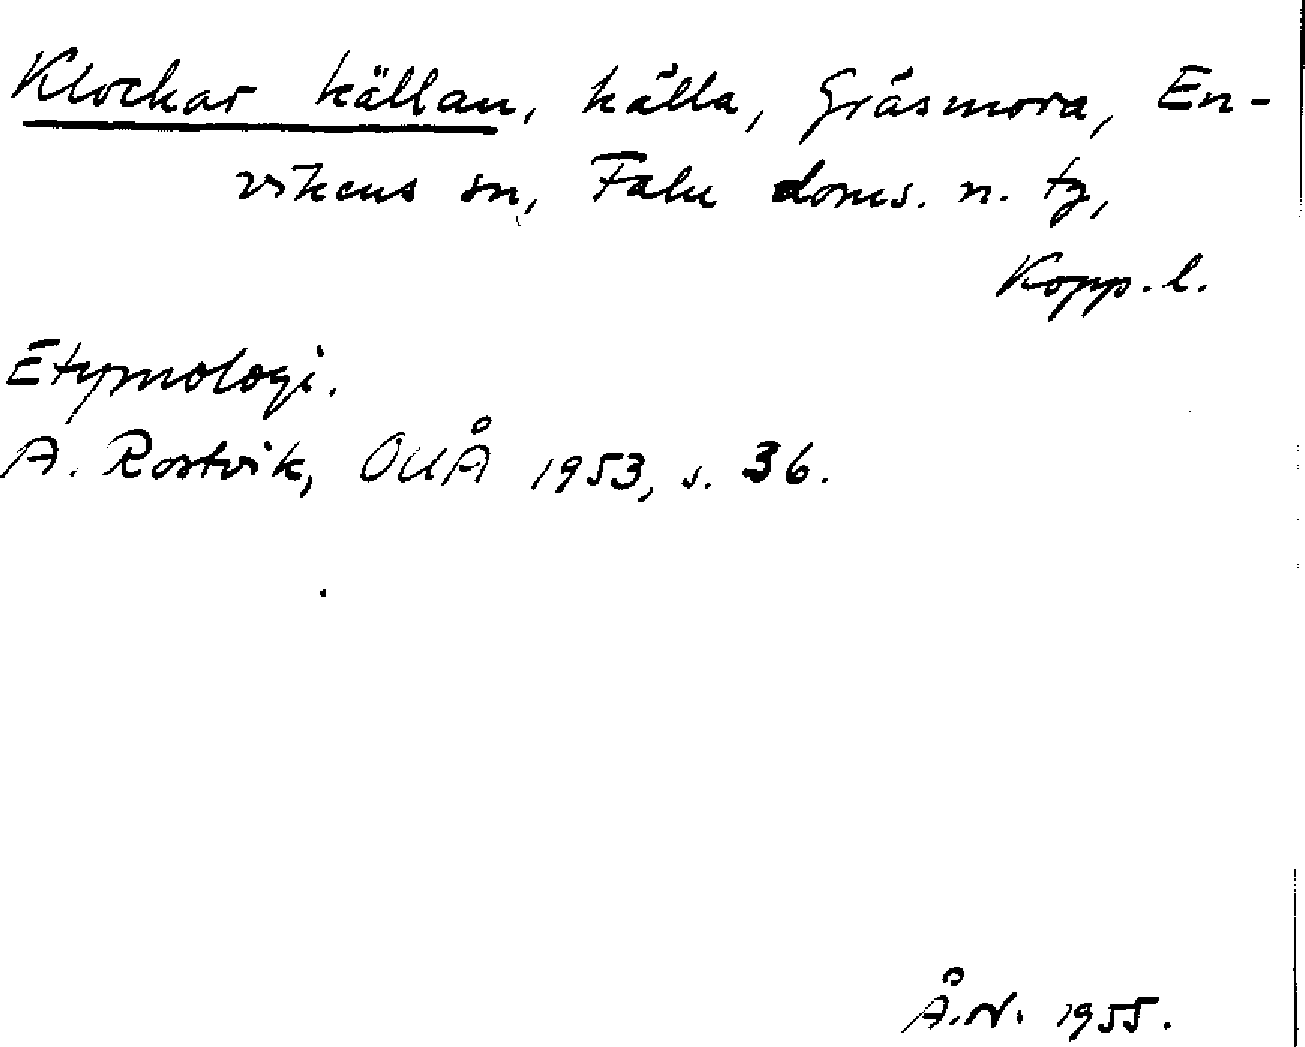 Klockar källan, källa, Gräsmora, En-
vikens sn, Falu doms. n. tg,
Kopp. l.
Etymologi.
A. Rostvik, OUÅ 1953, s. 36.
Å.N. 1955.